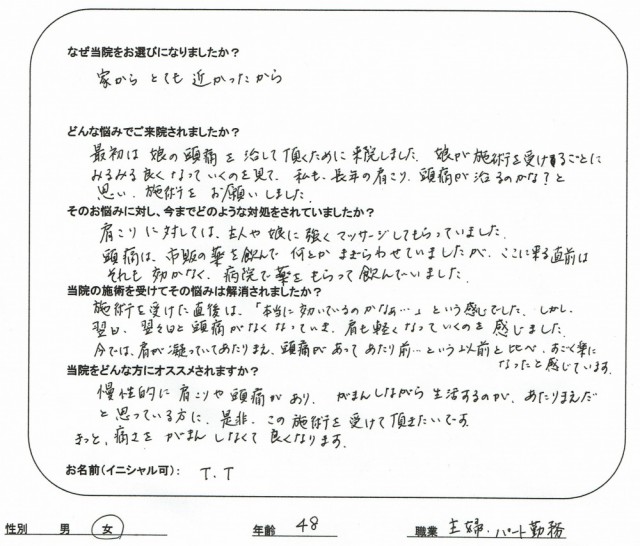 なぜ当院をお選びになりましたか？
家から とても 近かったから
どんな悩みでご来院されましたか？
最初は 娘の頭痛を治して頂くために来院しました。娘が施術を受けるごとに
みるみる良くなっていくのを見て、私も、長年の肩こり、頭痛が治るのかな？と
思い、施術を お願いしました。
そのお悩みに対し、今までどのような対処をされていましたか？
肩こりに対しては、主人や娘に強くマッサージしてもらっていました。
頭痛は、市販の薬を飲んで 何とか まぎらわせていましたが、ここに来る直前は
それも 効かなく、病院で薬をもらって飲んでいました。
当院の施術を受けてその悩みは解消されましたか？
施術を受けた直後は、「本当に効いているのかなぁ…」という感じでした。しかし、
翌日、翌々日と頭痛がなくなっていき、肩も軽くなっていくのを感じました。
今では、肩が凝っていてあたりまえ、頭痛があってあたり前…という以前と比べ、すごく楽に
なったと感じています。
当院をどんな方にオススメされますか？
慢性的に肩こりや頭痛があり、がまんしながら生活するのが、あたりまえだ
と思っている方に、是非、この施術を受けて頂きたいです。
きっと、痛さをがまんしなくて良くなります。
お名前（イニシャル可）： T.T
性別 男 女 年齢 48 職業 主婦・パート勤務